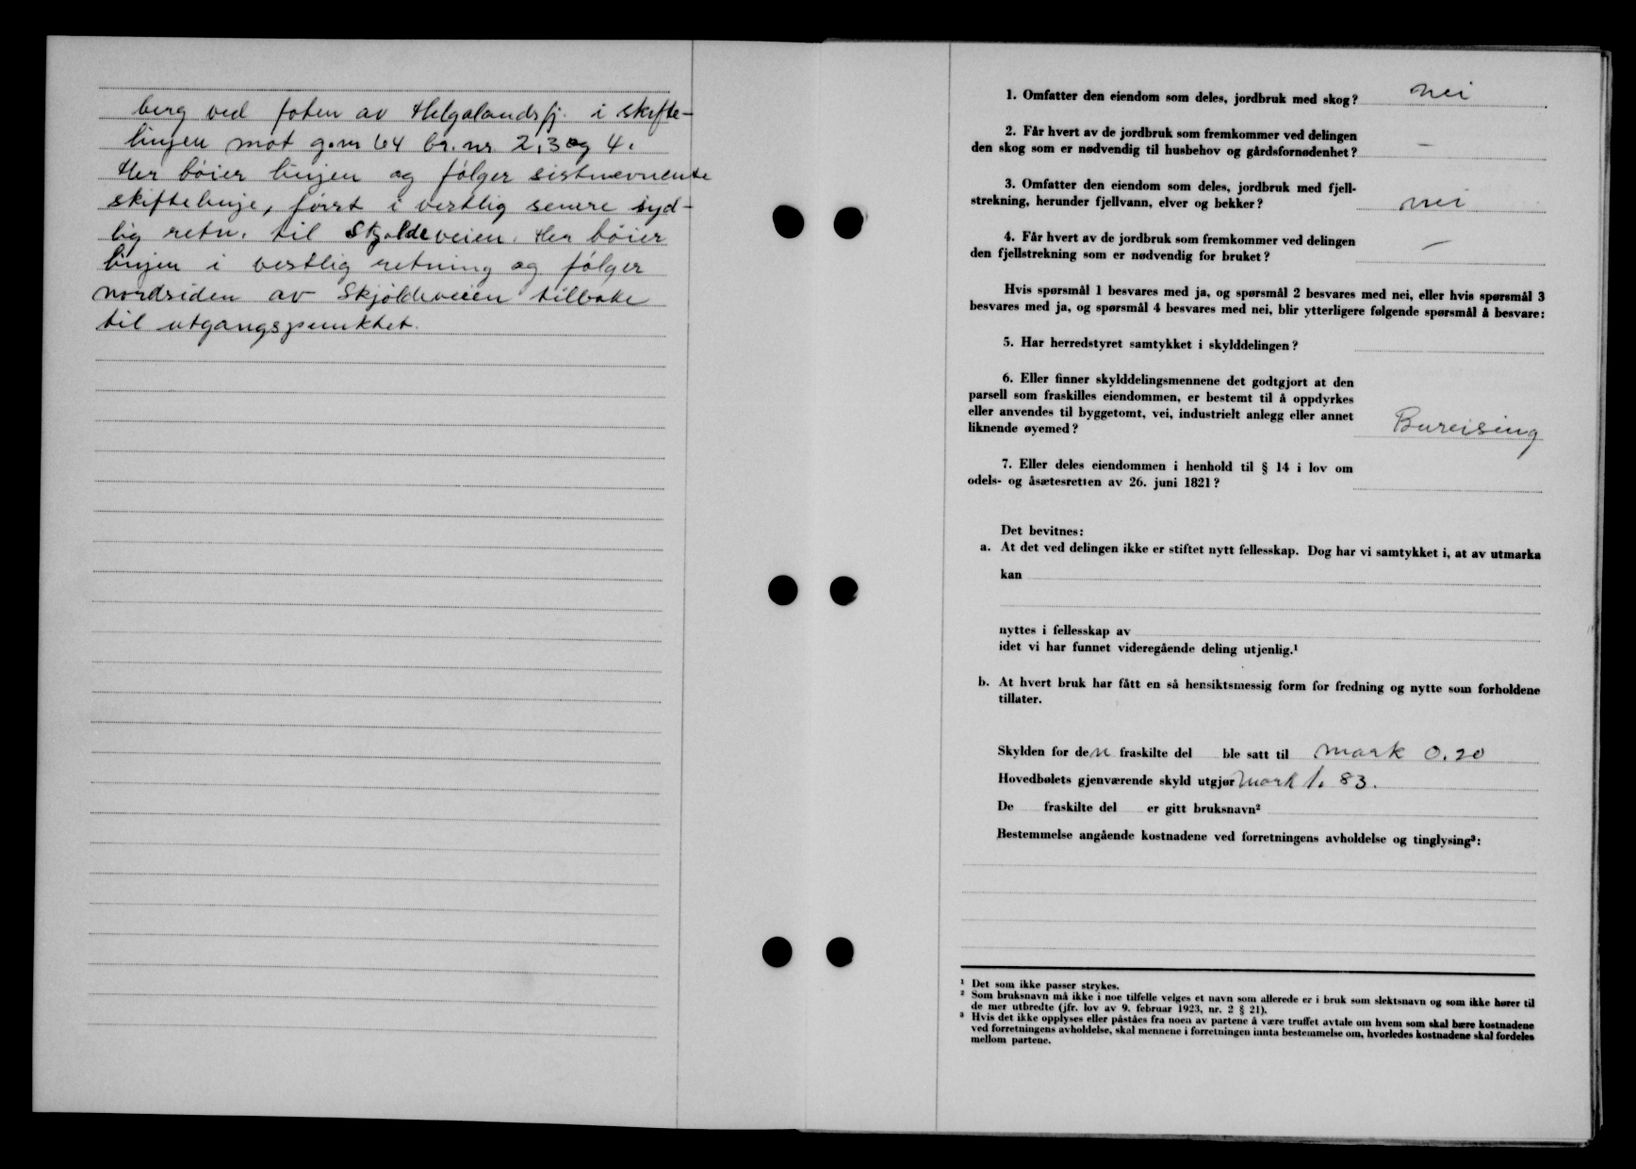 berg ved foten av Helgalandsfj. i skifte-
linjen mot g.nr 64 br.nr 2,3 og 4.
Her bóier linjen og fólger sistnevnente
skiftelinje, fórst i vestlig senere syd-
lig retn. til Skjoldeveien. Her bóier
linjen i vestlig retning og fólger
nordsiden av Skjóldeveien tilbake
til utgangspunktet.
1. Omfatter den eiendom som deles, jordbruk med skog? nei
2. Får hvert av de jordbruk som fremkommer ved delingen
den skog som er nødvendig til husbehov og gårdsfornødenhet? –
3. Omfatter den eiendom som deles, jordbruk med fjell-
strekning, herunder fjellvann, elver og bekker? nei
4. Får hvert av de jordbruk som fremkommer ved delingen
den fjellstrekning som er nødvendig for bruket? –
Hvis spørsmål 1 besvares med ja, og spørsmål 2 besvares med nei, eller hvis spørsmål 3
besvares med ja, og spørsmål 4 besvares med nei, blir ytterligere følgende spørsmål å besvare:
5. Har herredstyret samtykket i skylddelingen?
6. Eller finner skylddelingsmennene det godtgjort at den
parsell som fraskilles eiendommen, er bestemt til å oppdyrkes
eller anvendes til byggetomt, vei, industrielt anlegg eller annet
liknende øyemed? Bureising
7. Eller deles eiendommen i henhold til § 14 i lov om
odels- og åsætesretten av 26. juni 1821?
Det bevitnes:
a. At det ved delingen ikke er stiftet nytt fellesskap. Dog har vi samtykket i, at av utmarka
kan
nyttes i fellesskap av
idet vi har funnet videregående deling utjenlig.¹
b. At hvert bruk har fått en så hensiktsmessig form for fredning og nytte som forholdene
tillater.
Skylden for den fraskilte del ble satt til mark 0.20
Hovedbølets gjenværende skyld utgjør mark 1.83.
De fraskilte del er gitt bruksnavn²
Bestemmelse angående kostnadene ved forretningens avholdelse og tinglysing³:
¹ Det som ikke passer strykes.
² Som bruksnavn må ikke i noe tilfelle velges et navn som allerede er i bruk som slektsnavn og som ikke hører til
de mer utbredte (jfr. lov av 9. februar 1923, nr. 2 § 21).
³ Hvis det ikke opplyses eller påståes fra noen av partene å være truffet avtale om hvem som skal bære kostnadene
ved forretningens avholdelse, skal mennene i forretningen innta bestemmelse om, hvorledes kostnadene skal fordeles
mellom partene.